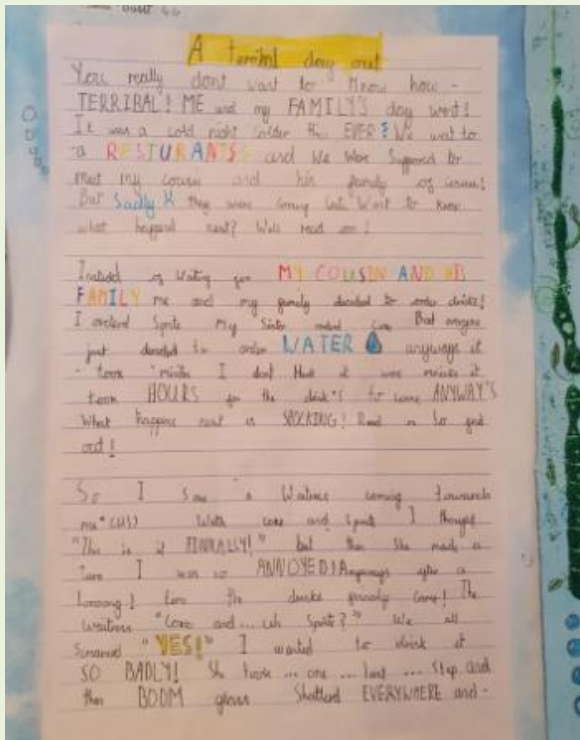 A terribl day out
You really dont want to know how -
TERRIBAL! ME and my FAMILY'S day went!
It was a cold night colder than EVER! We went to
a RESTURANTS and we were supposed to
meet my cousin and his family of course!
But Sadly they were coming late. Want to know
what happend next? Well read on!
Instead of waiting for MY COUSIN AND HIS
FAMILY me and my family decided to order drinks!
I orderd Sprite My Sister orderd Coke But
just decided to order WATER anyways it
took I dont think it was minutes it
took HOURS for the drink's to come ANYWAY'S
What happens next is SHOCKING! Read on to find
out!
So I saw a Waitress coming towards
me (us) With coke and sprite I thought
"This is it FINNALLY!" but then She made a
turn I was so ANNOYED! Anyways after a
looong! time the drinks came! The
waitress "Coke and... uh Sprite?" We all
"YES!" I wanted to drink it
SO BADLY! She took ... one ... last ... step and
then BOOM glass EVERYWHERE and -